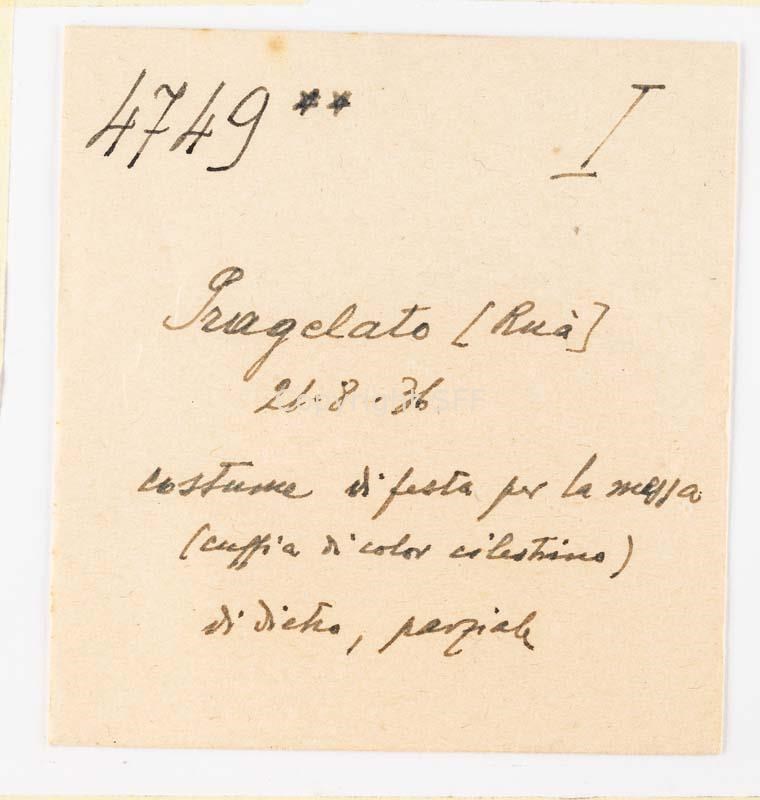 4749 ** I
Pragelato [Ruà]
26.8.36
costume di festa per la messa
(cuffia di color cilestrino)
di dietro, parziale